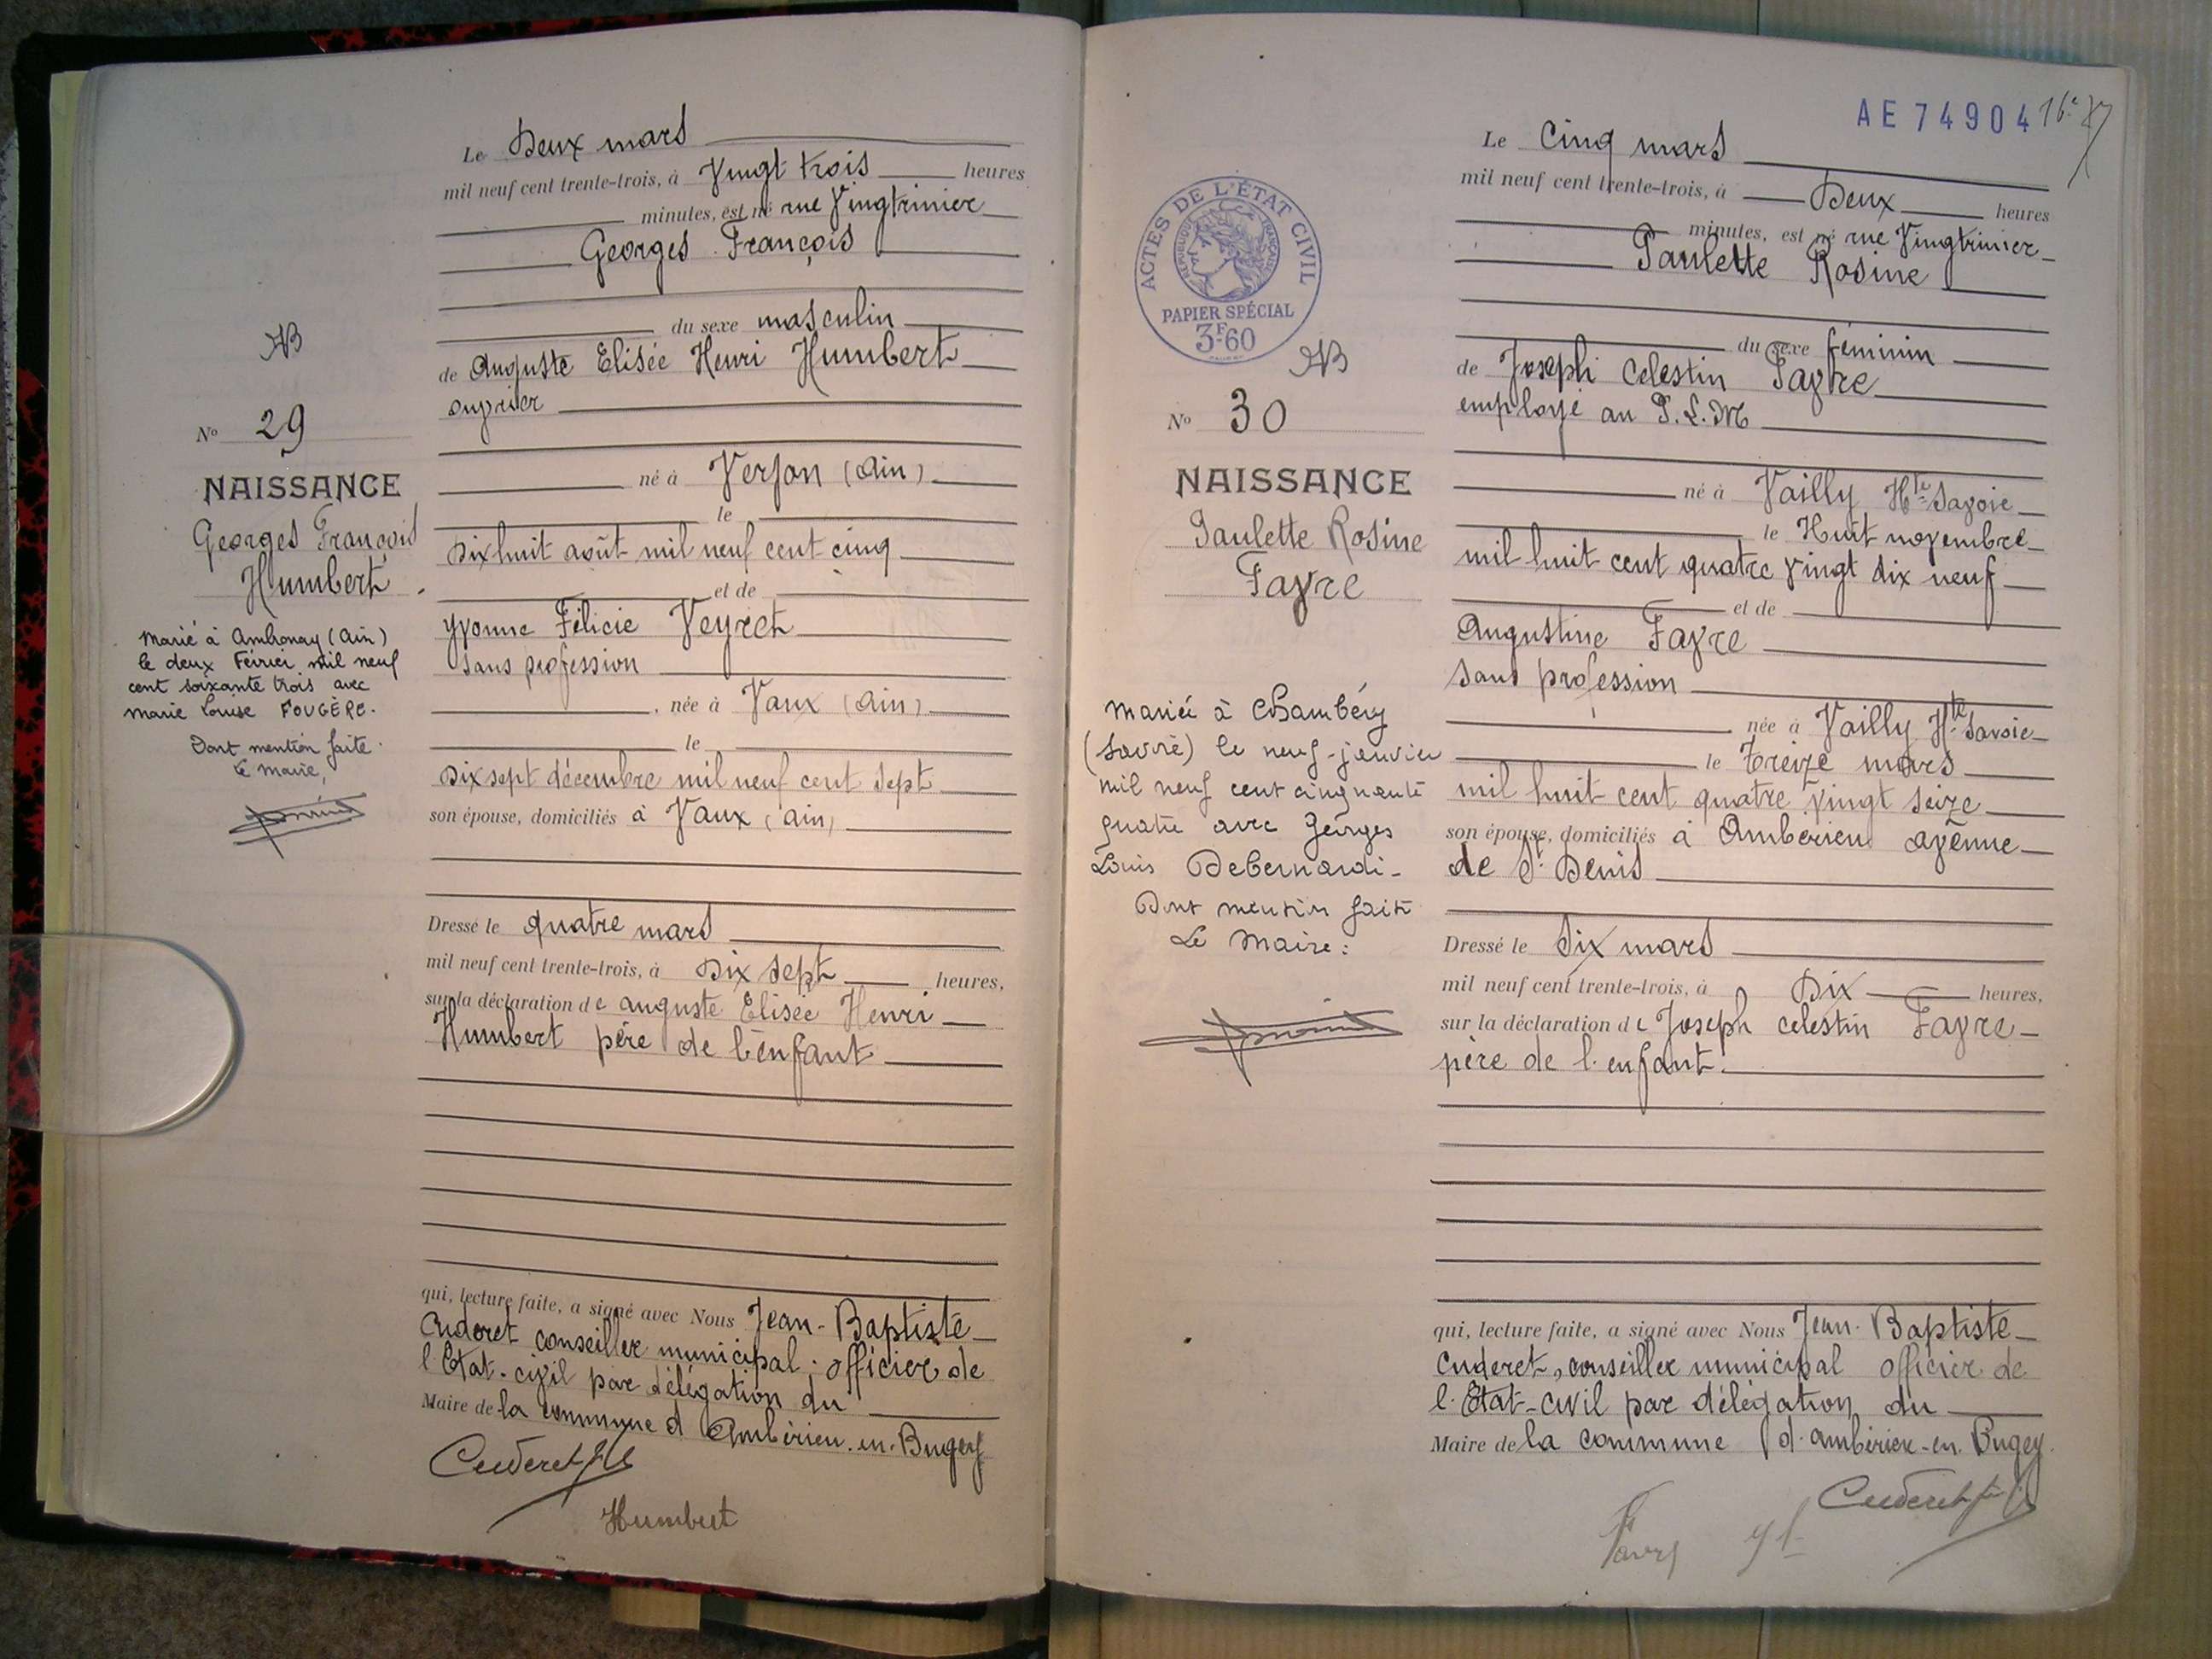 Le Deux mars
mil neuf cent trente-trois, à Vingt trois heures
minutes, est né rue Vingtrinier
Georges François
du sexe masculin
de Auguste Elisée Henri Humbert
ouvrier
né à Verjon (Ain)
le
Dix huit août mil neuf cent cinq
et de
Yvonne Félicie Veyret
sans profession
, née à Vaux (Ain)
le
Dix sept décembre mil neuf cent sept
son épouse, domiciliés à Vaux (Ain)
Dressé le quatre mars
mil neuf cent trente-trois, à Dix sept heures,
sur la déclaration de Auguste Elisée Henri
Humbert père de l'enfant
qui, lecture faite, a signé avec Nous Jean-Baptiste
Cuderet conseiller municipal. officier de
l'Etat-civil par délégation du
Maire de la commune d'Ambérieu-en-Bugey
Cuderet
Humbert
NB
No 29
NAISSANCE
Georges François
Humbert
Marié à Ambronay (Ain)
le deux Février mil neuf
cent soixante trois avec
Marie Louise FOUGÈRE.
Dont mention faite.
Le Maire,
AE 74904
16e
ACTES DE L'ÉTAT CIVIL
RÉPUBLIQUE FRANÇAISE
PAPIER SPÉCIAL
3F60
NB
No 30
NAISSANCE
Paulette Rosine
Favre
Mariée à Chambéry
(Savoie) le neuf-janvier
mil neuf cent cinquante
quatre avec Georges
Louis Debernardi-
Dont mention faite
Le Maire:
Le Cinq mars
mil neuf cent trente-trois, à Deux heures
minutes, est né rue Vingtrinier
Paulette Rosine
du sexe féminin
de Joseph Celestin Favre
employé au P.L.M
né à Vailly Hte Savoie
le Huit novembre
mil huit cent quatre vingt dix neuf
et de
Augustine Favre
sans profession
née à Vailly Hte Savoie
le Treize mars
mil huit cent quatre vingt seize
son épouse, domiciliés à Ambérieu avenue
de St Denis
Dressé le Six mars
mil neuf cent trente-trois, à Dix heures,
sur la déclaration de Joseph Celestin Favre
père de l'enfant.
qui, lecture faite, a signé avec Nous Jean-Baptiste
Cuderet, conseiller municipal officier de
l'Etat-civil par délégation du
Maire de la commune d'Ambérieu-en-Bugey.
Cuderet
Favre